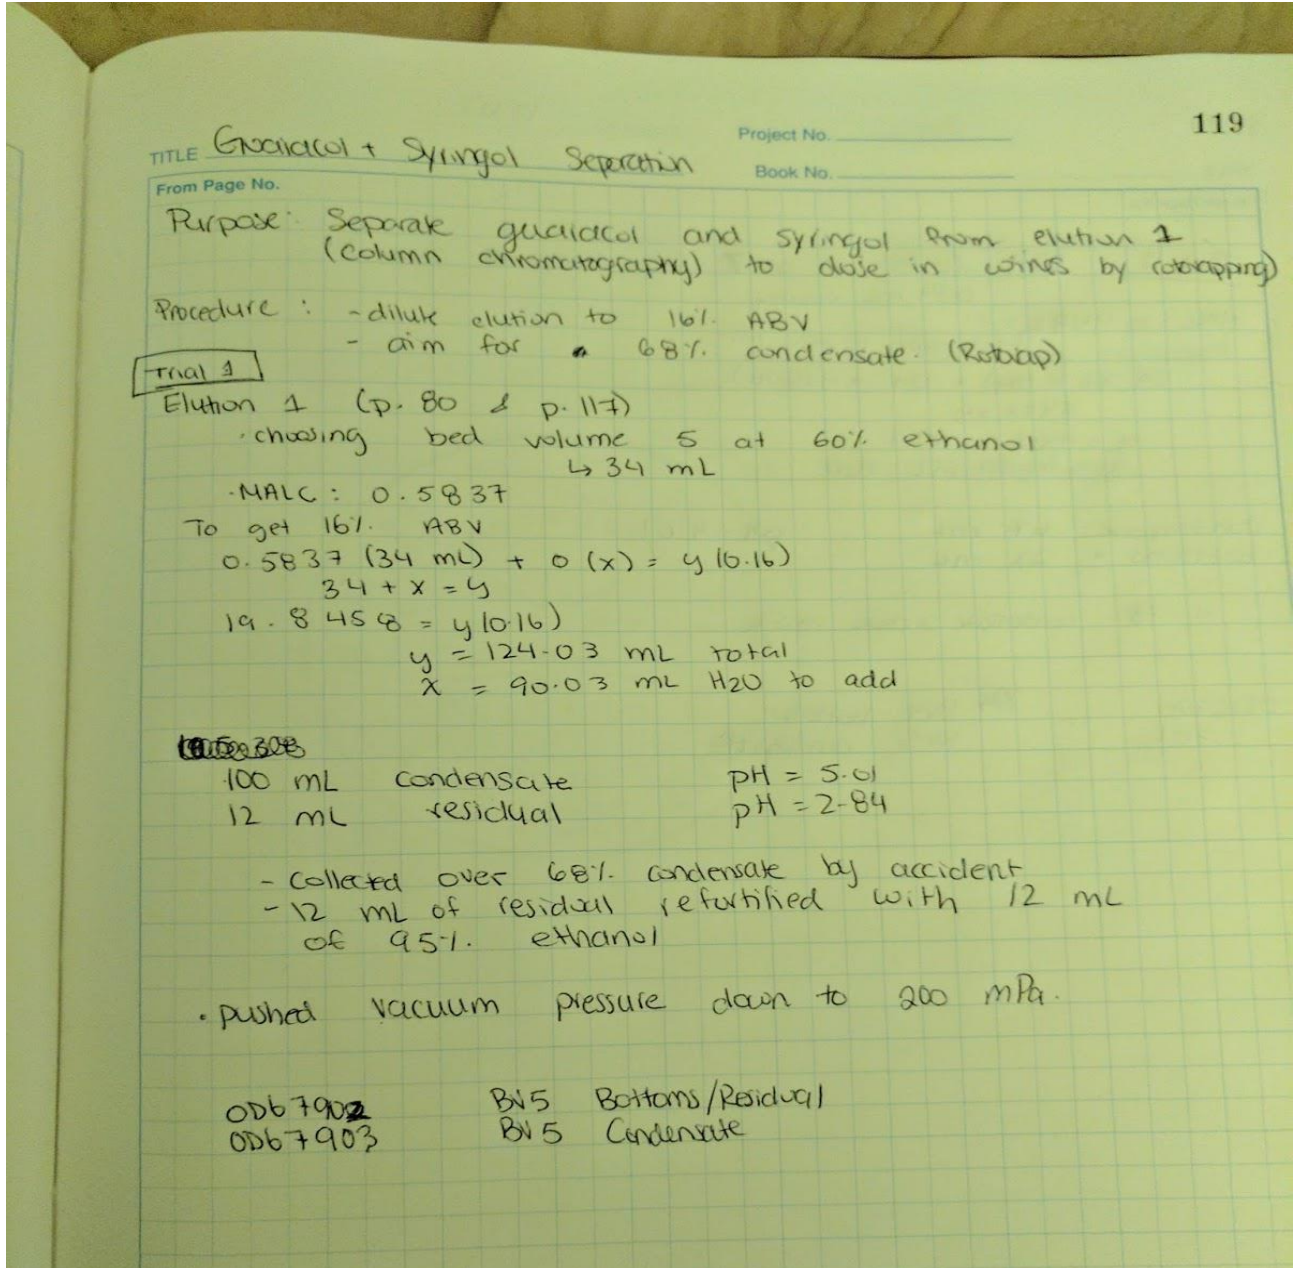 119
TITLE Guaiacol + Syringol Separation
Project No.
Book No.
From Page No.
Purpose: Separate guaiacol and syringol from elution 1
(column chromatography) to dose in wines by rotovapping)
Procedure : - dilute elution to 16% ABV
- aim for a 68% condensate. (Rotovap)
Trial 1
Elution 1 (p. 80 & p. 117)
· choosing bed volume 5 at 60% ethanol
↳ 34 mL
· MALC : 0.5837
To get 16% ABV
0.5837 (34 mL) + 0 (x) = y (0.16)
34 + x = y
19.8458 = y (0.16)
y = 124.03 mL total
x = 90.03 mL H2O to add
100 mL condensate pH = 5.01
12 mL residual pH = 2.84
- Collected over 68% condensate by accident
- 12 mL of residual refortified with 12 mL
of 95% ethanol
· pushed vacuum pressure down to 200 mPa.
ODb7902 BV5 Bottoms/Residual
ODb7903 BV5 Condensate